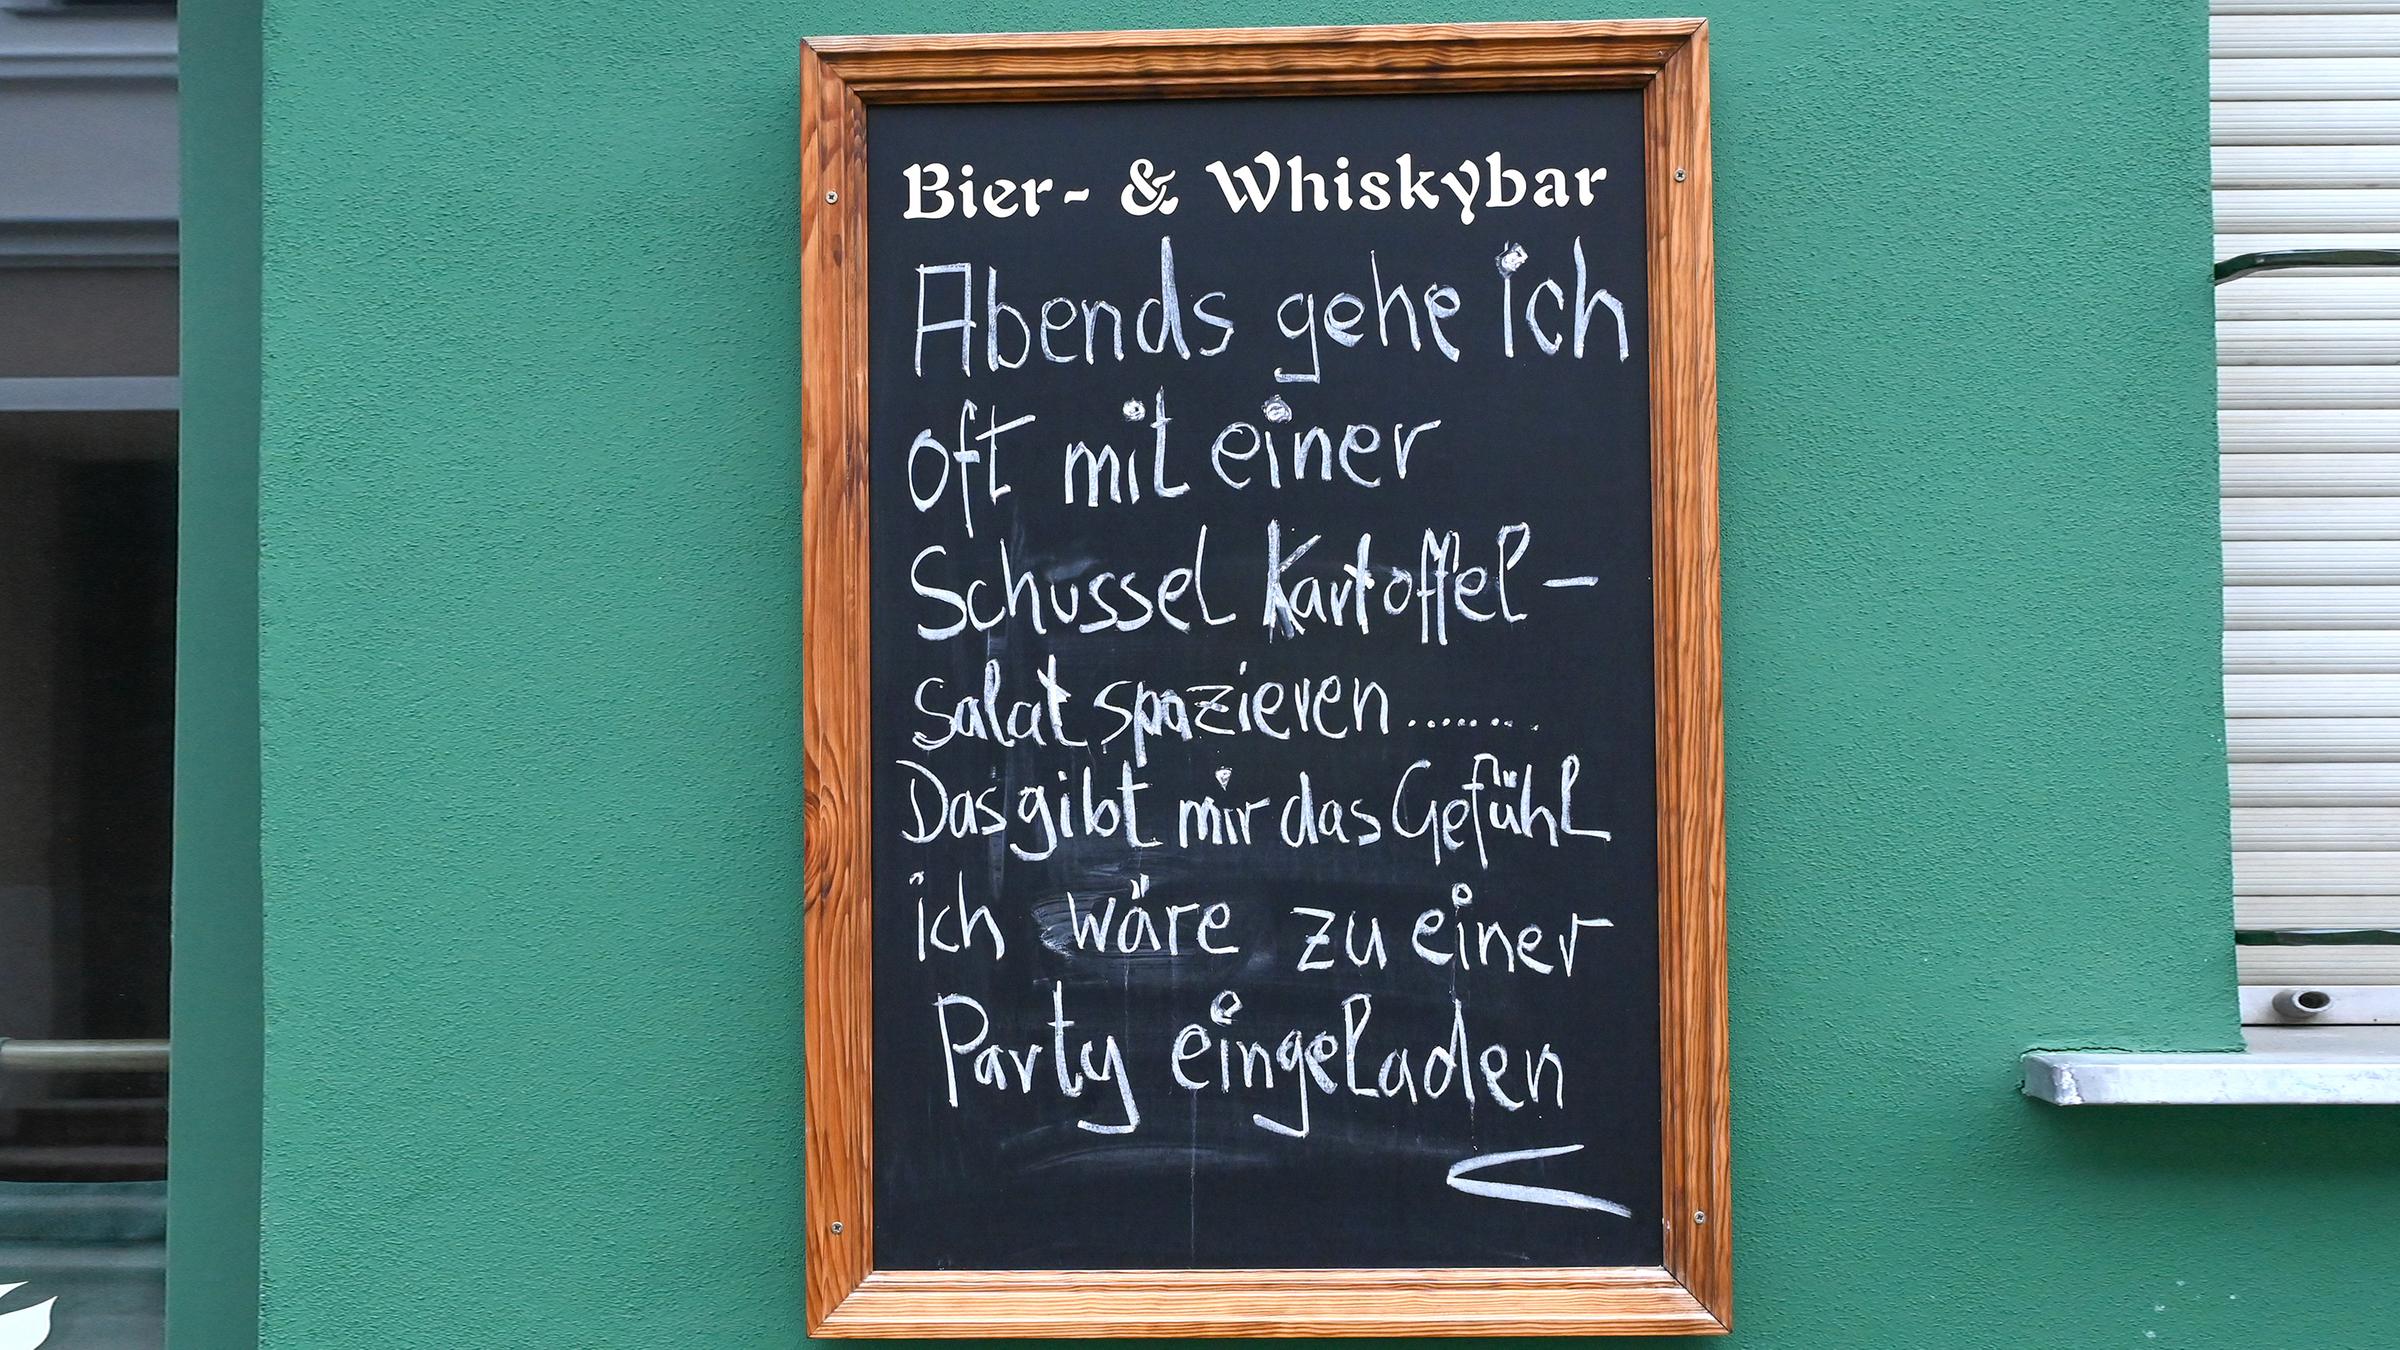 Bier- & Whiskybar
Abends gehe ich
oft mit einer
Schussel Kartoffel-
salat spazieren........
Das gibt mir das Gefühl
ich wäre zu einer
Party eingeladen